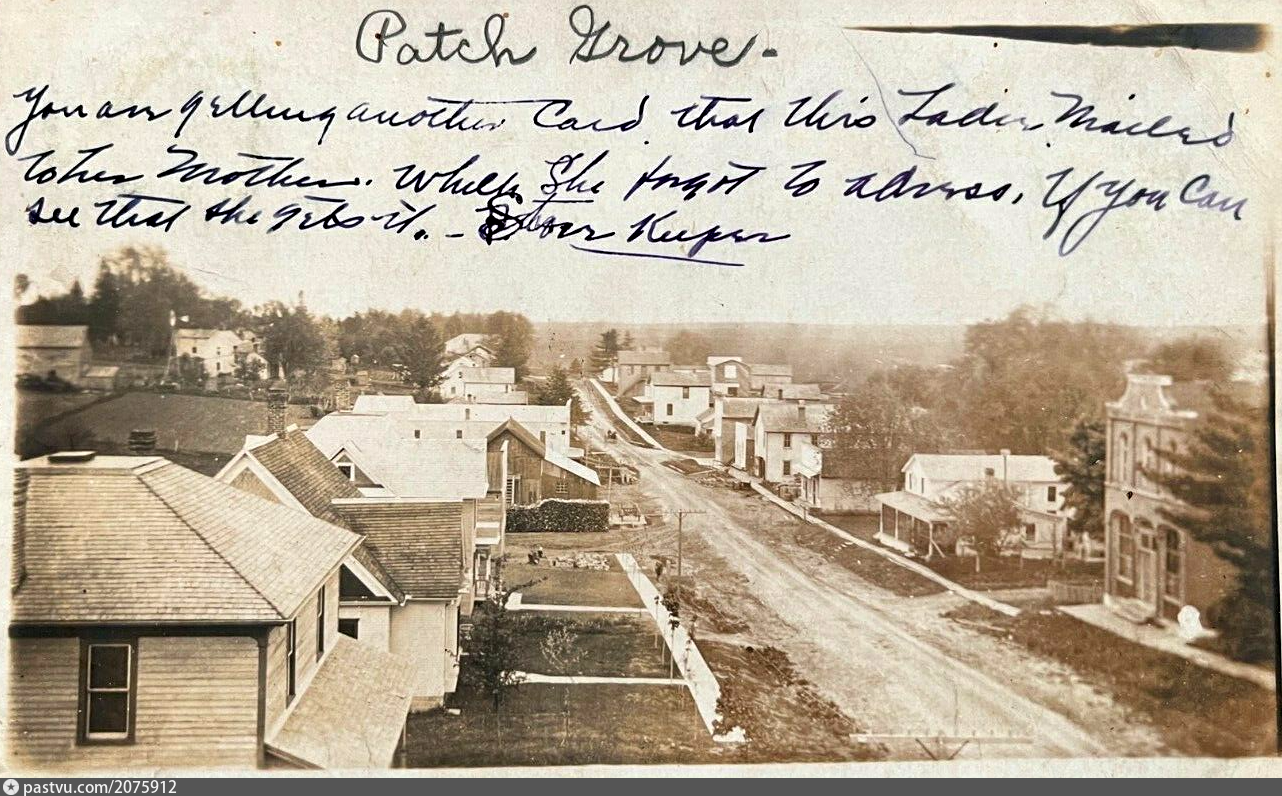 Patch Grove.
You are getting another Card that this Ladie, Mailed
to her Mother. Which She forgot to adress, If you Can
see that she gets it. - Store Keeper
pastvu.com/2075912